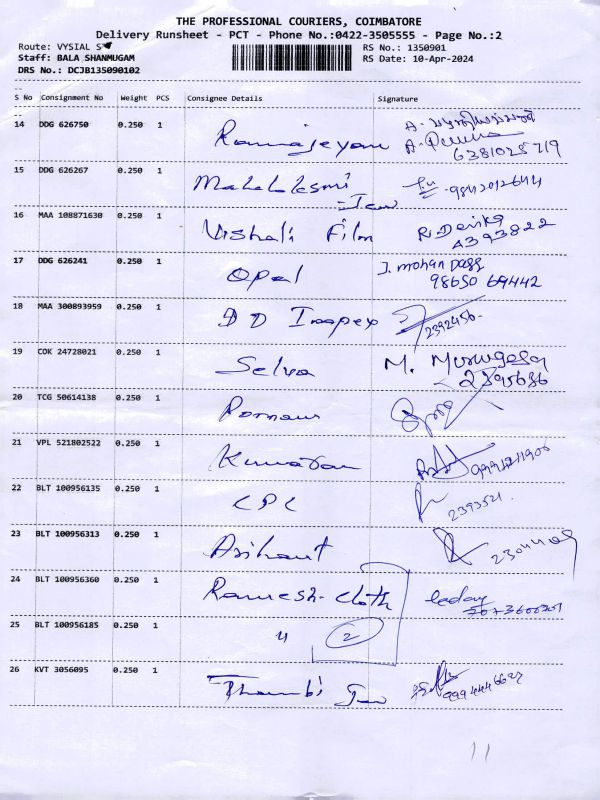 THE PROFESSIONAL COURIERS, COIMBATORE
Delivery Runsheet - PCT - Phone No.:0422-3505555 - Page No.:2
Route: VYSIAL S
RS No.: 1350901
Staff: BALA SHANMUGAM
RS Date: 10-Apr-2024
DRS No.: DCJB135090102
S No Consignment No Weight PCS Consignee Details Signature
14 DDG 626750 0.250 1 Ramajeyam
6381025719
15 DDG 626267 0.250 1 Mahalaksmi 9842012644
16 MAA 108871630 0.250 1 Vishali Film R. Devika
4393822
17 DDG 626241 0.250 1 Opal J. mohan Dass
98650 69442
18 MAA 300893959 0.250 1 D D Impex 2392456
19 COK 24728021 0.250 1 Selva M. Murugesan
20 TCG 50614138 0.250 1
21 VPL 521802522 0.250 1 Kumaran
22 BLT 100956135 0.250 1 CPC 2393521
23 BLT 100956313 0.250 1 Arihant
24 BLT 100956360 0.250 1 Ramesh-cloth
25 BLT 100956185 0.250 1 " 2
26 KVT 3056095 0.250 1 Thambi
11